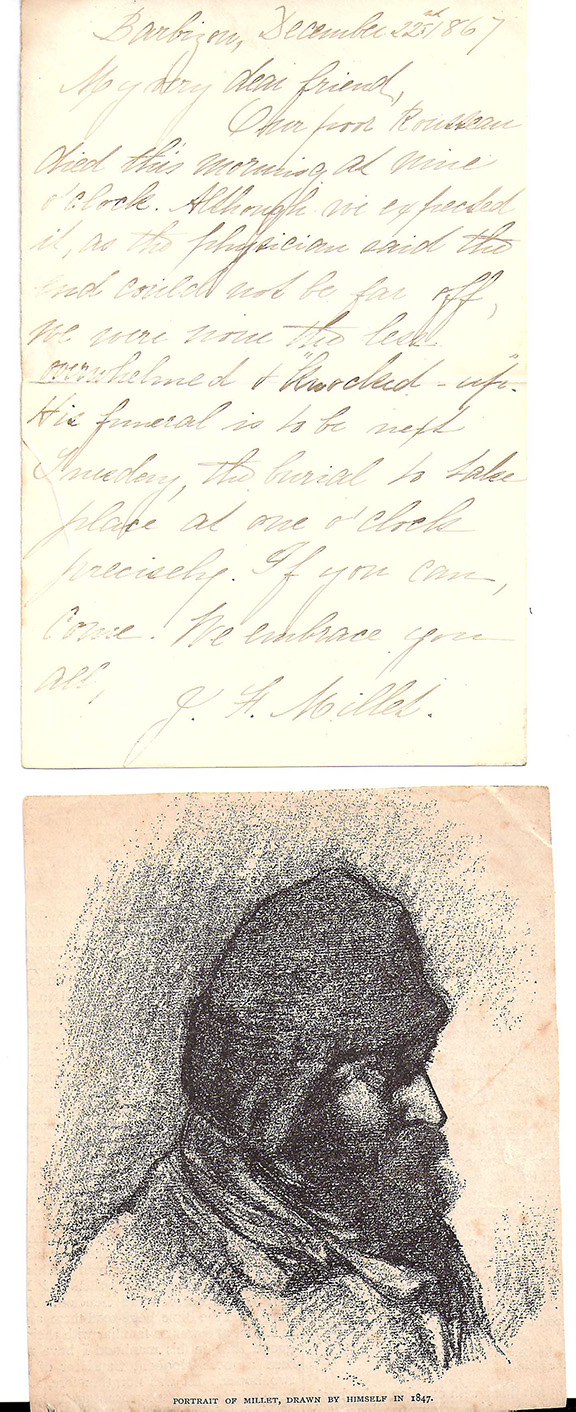 Barbizon, December 22nd 1867
My very dear friend,
Our poor Rousseau
died this morning at nine
o'clock. Although we expected
it, as the physician said the
end could not be far off,
we were none the less
overwhelmed & "knocked-up".
His funeral is to be next
Tuesday, the burial to take
place at one o'clock
precisely. If you can,
come. We embrace you
all,
J. F. Millet.
PORTRAIT OF MILLET, DRAWN BY HIMSELF IN 1847.